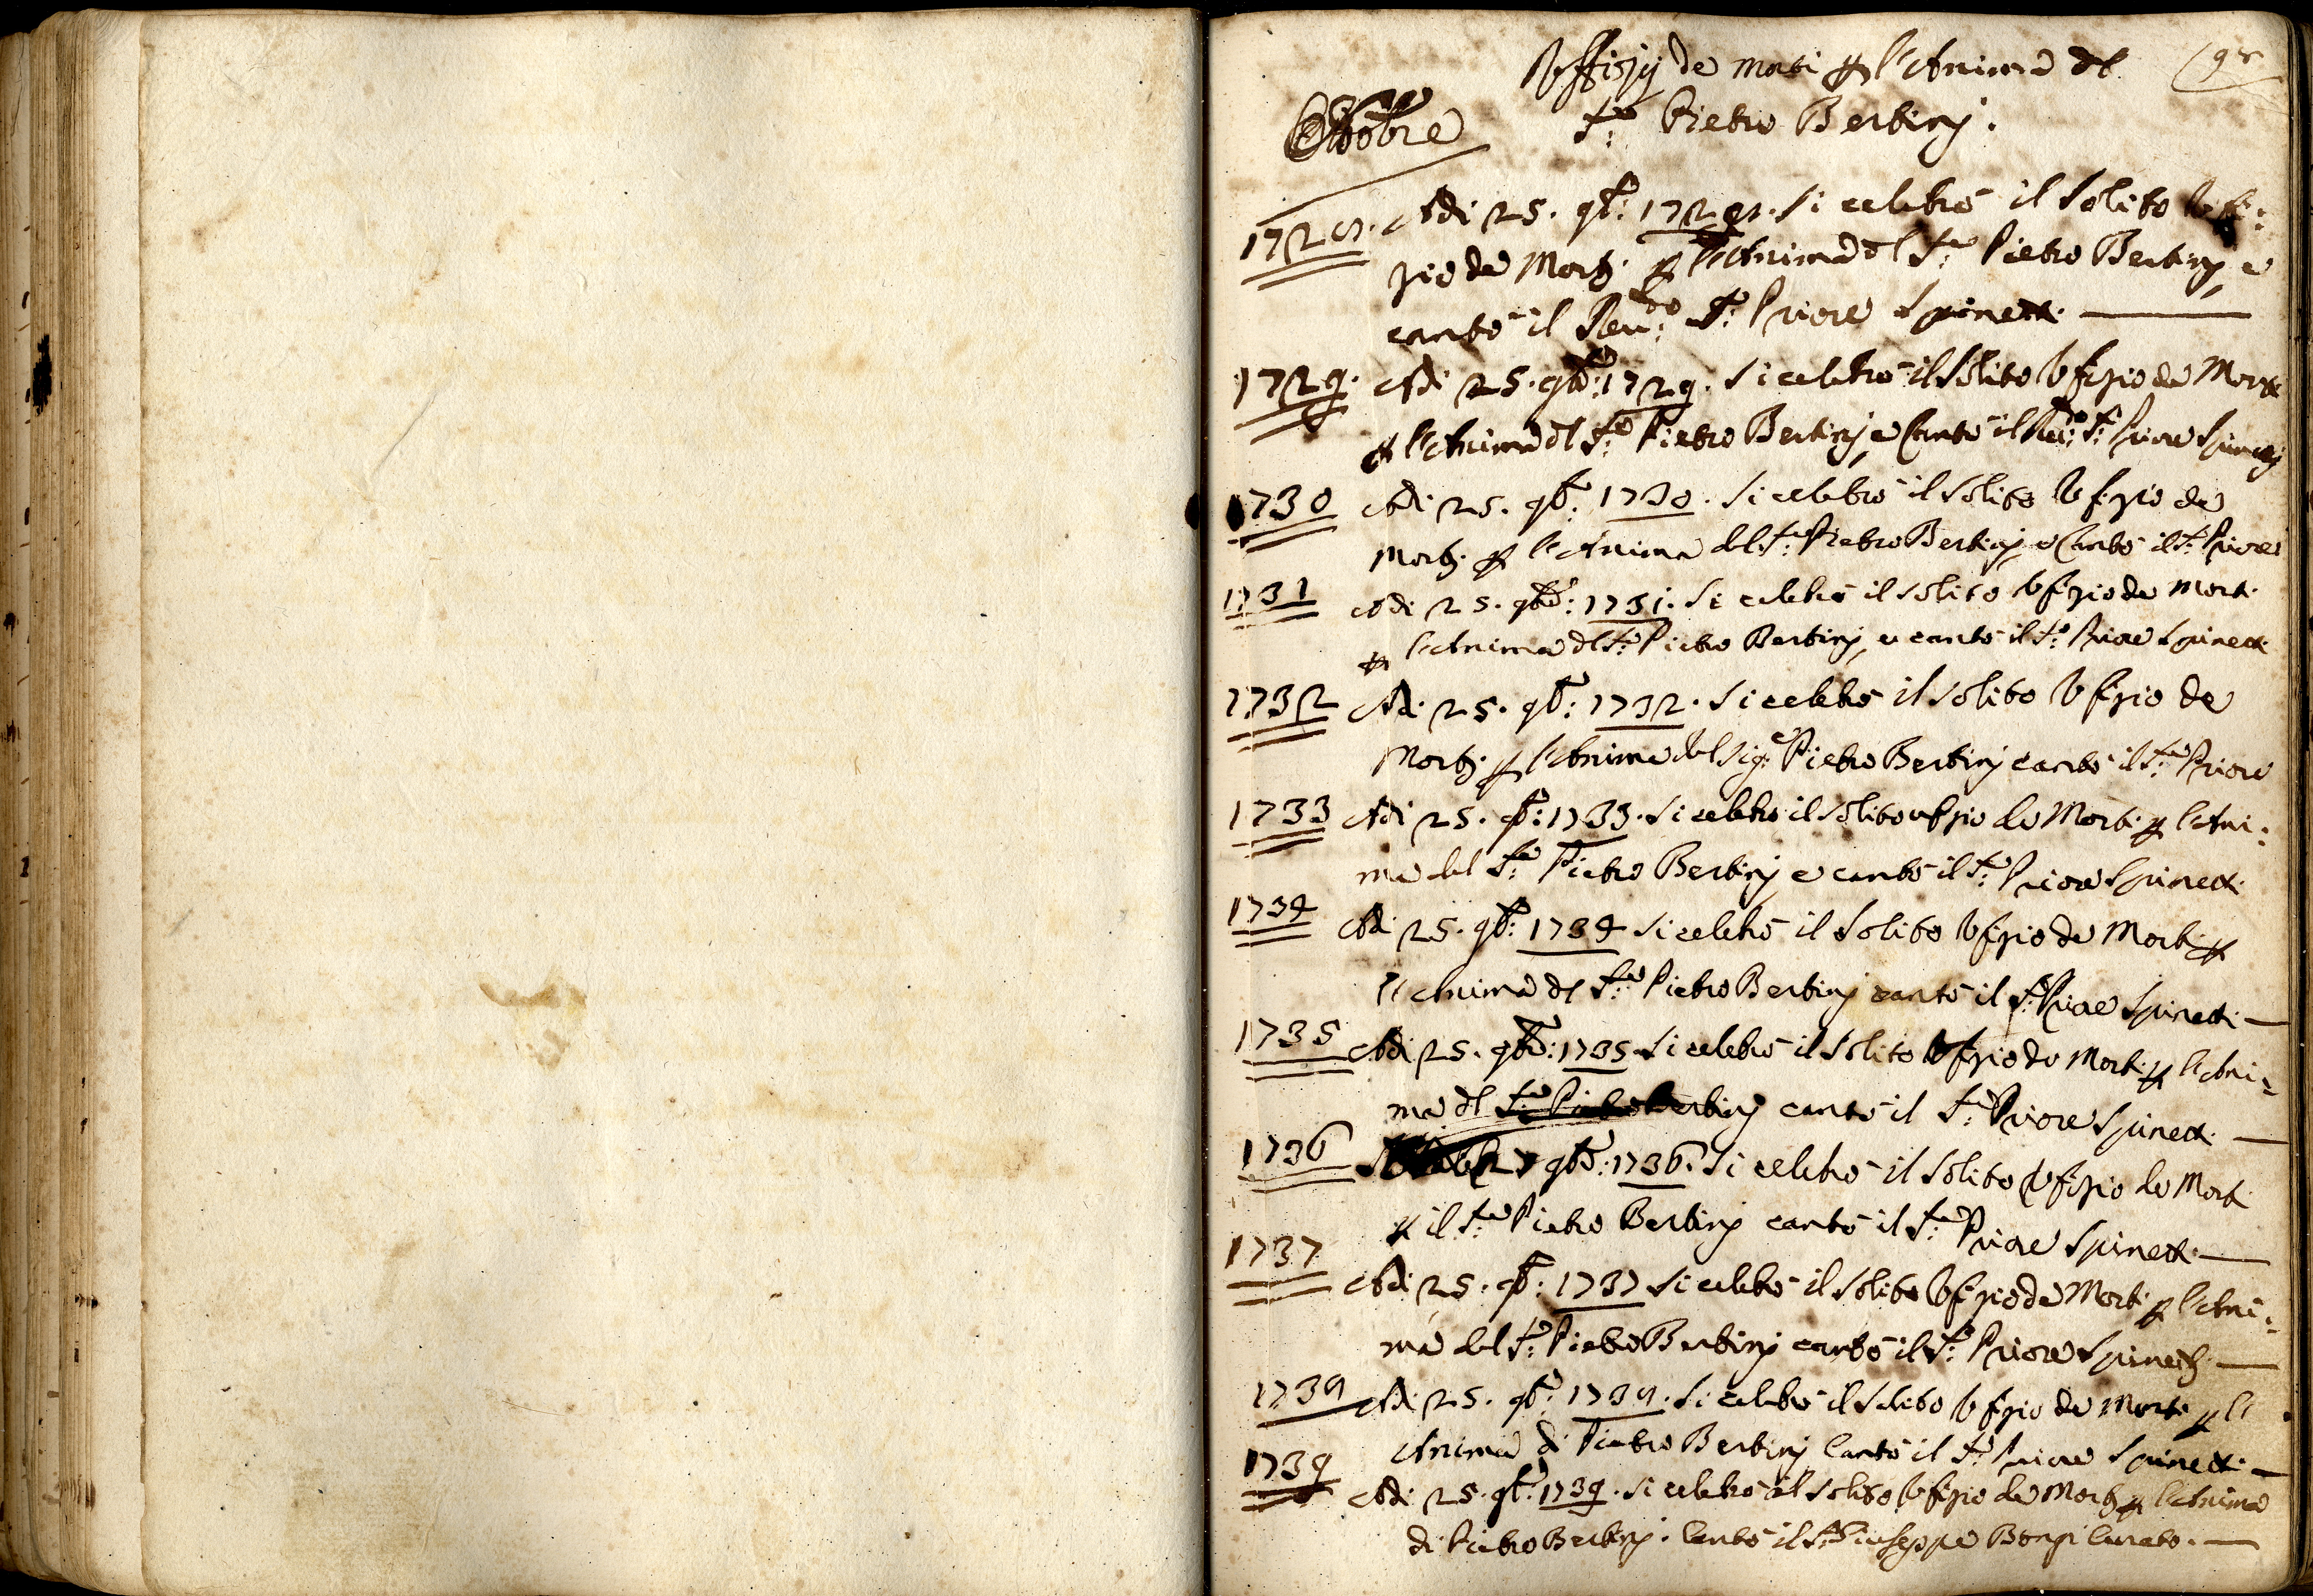 Uffizij de morti p l'Anima dl
Sr: Pietro Bertinj.
Ottobre
1728. Adi 25. 9b: 1728. Si celebrò il solito Uffi:
zio de Mortj. p l'Anima dl Sre: Pietro Bertinj, e
cantò il Reu:do Sr: Priore Spinetti.
1729. Adi 25. 9bre: 1729. Si celebrò il solito Ufizio de Morti
p l'Anima dl Sre: Pietro Bertinj e Cantò il Reu:do Sr: Priore Spinettj
1730 Adi 25. 9b: 1730. Si celebrò il solito Ufizio de
Mortj. p l'Anima del Sre: Pietro Bertinj, e Cantò il Sr: Priore
1731 Adi 25. 9bre: 1731. Si celebrò il solito Ufizio de Morti
p l'Anima dl Sre: Pietro Bertinj, e cantò il Sr: Priore Spinetti
1732 Adi 25. 9b: 1732. Si celebrò il solito Ufizio de
Mortj. p l'Anima del Sig:e Pietro Bertinj cantò il Sre: Priore
1733 Adi 25. 9b: 1733. Si celebrò il solito ufizio de Morti p l'Ani:
ma del Sre: Pietro Bertinj e cantò il Sre: Priore Spinetti.
1734 Adi 25. 9b: 1734 Si celebrò il solito Ufizio de Morti p
l'Anima dl Sre: Pietro Bertinj cantò il Sr: Priore Spinetti
1735 Adi 25. 9bre: 1735 Si celebrò il solito Ufizio de Morti p l'Ani:
ma dl Sre: Pietro Bertinj cantò il Sr: Priore Spinetti.
1736 9bre: 1736. Si celebrò il solito Ufizio de Morti
p il Sre: Pietro Bertinj cantò il Sre: Priore Spinetti.
1737 Adi 25. 9b: 1737 Si celebrò il solito Ufizio de Morti p l'Ani:
ma del Sr: Pietro Bertinj cantò il Sr: Priore Spinettj.
1738 Adi 25. 9b: 1738. Si celebrò il solito Ufizio de Morti p l'
Anima di Pietro Bertinj Cantò il Sr: Priore Spinetti.
1739 Adi 25. 9b: 1739. Si celebrò il solito Ufizio de Mortj p l'Anima
di Pietro Bertinj. Cantò il Sr: Giuseppe Bongi Curato.